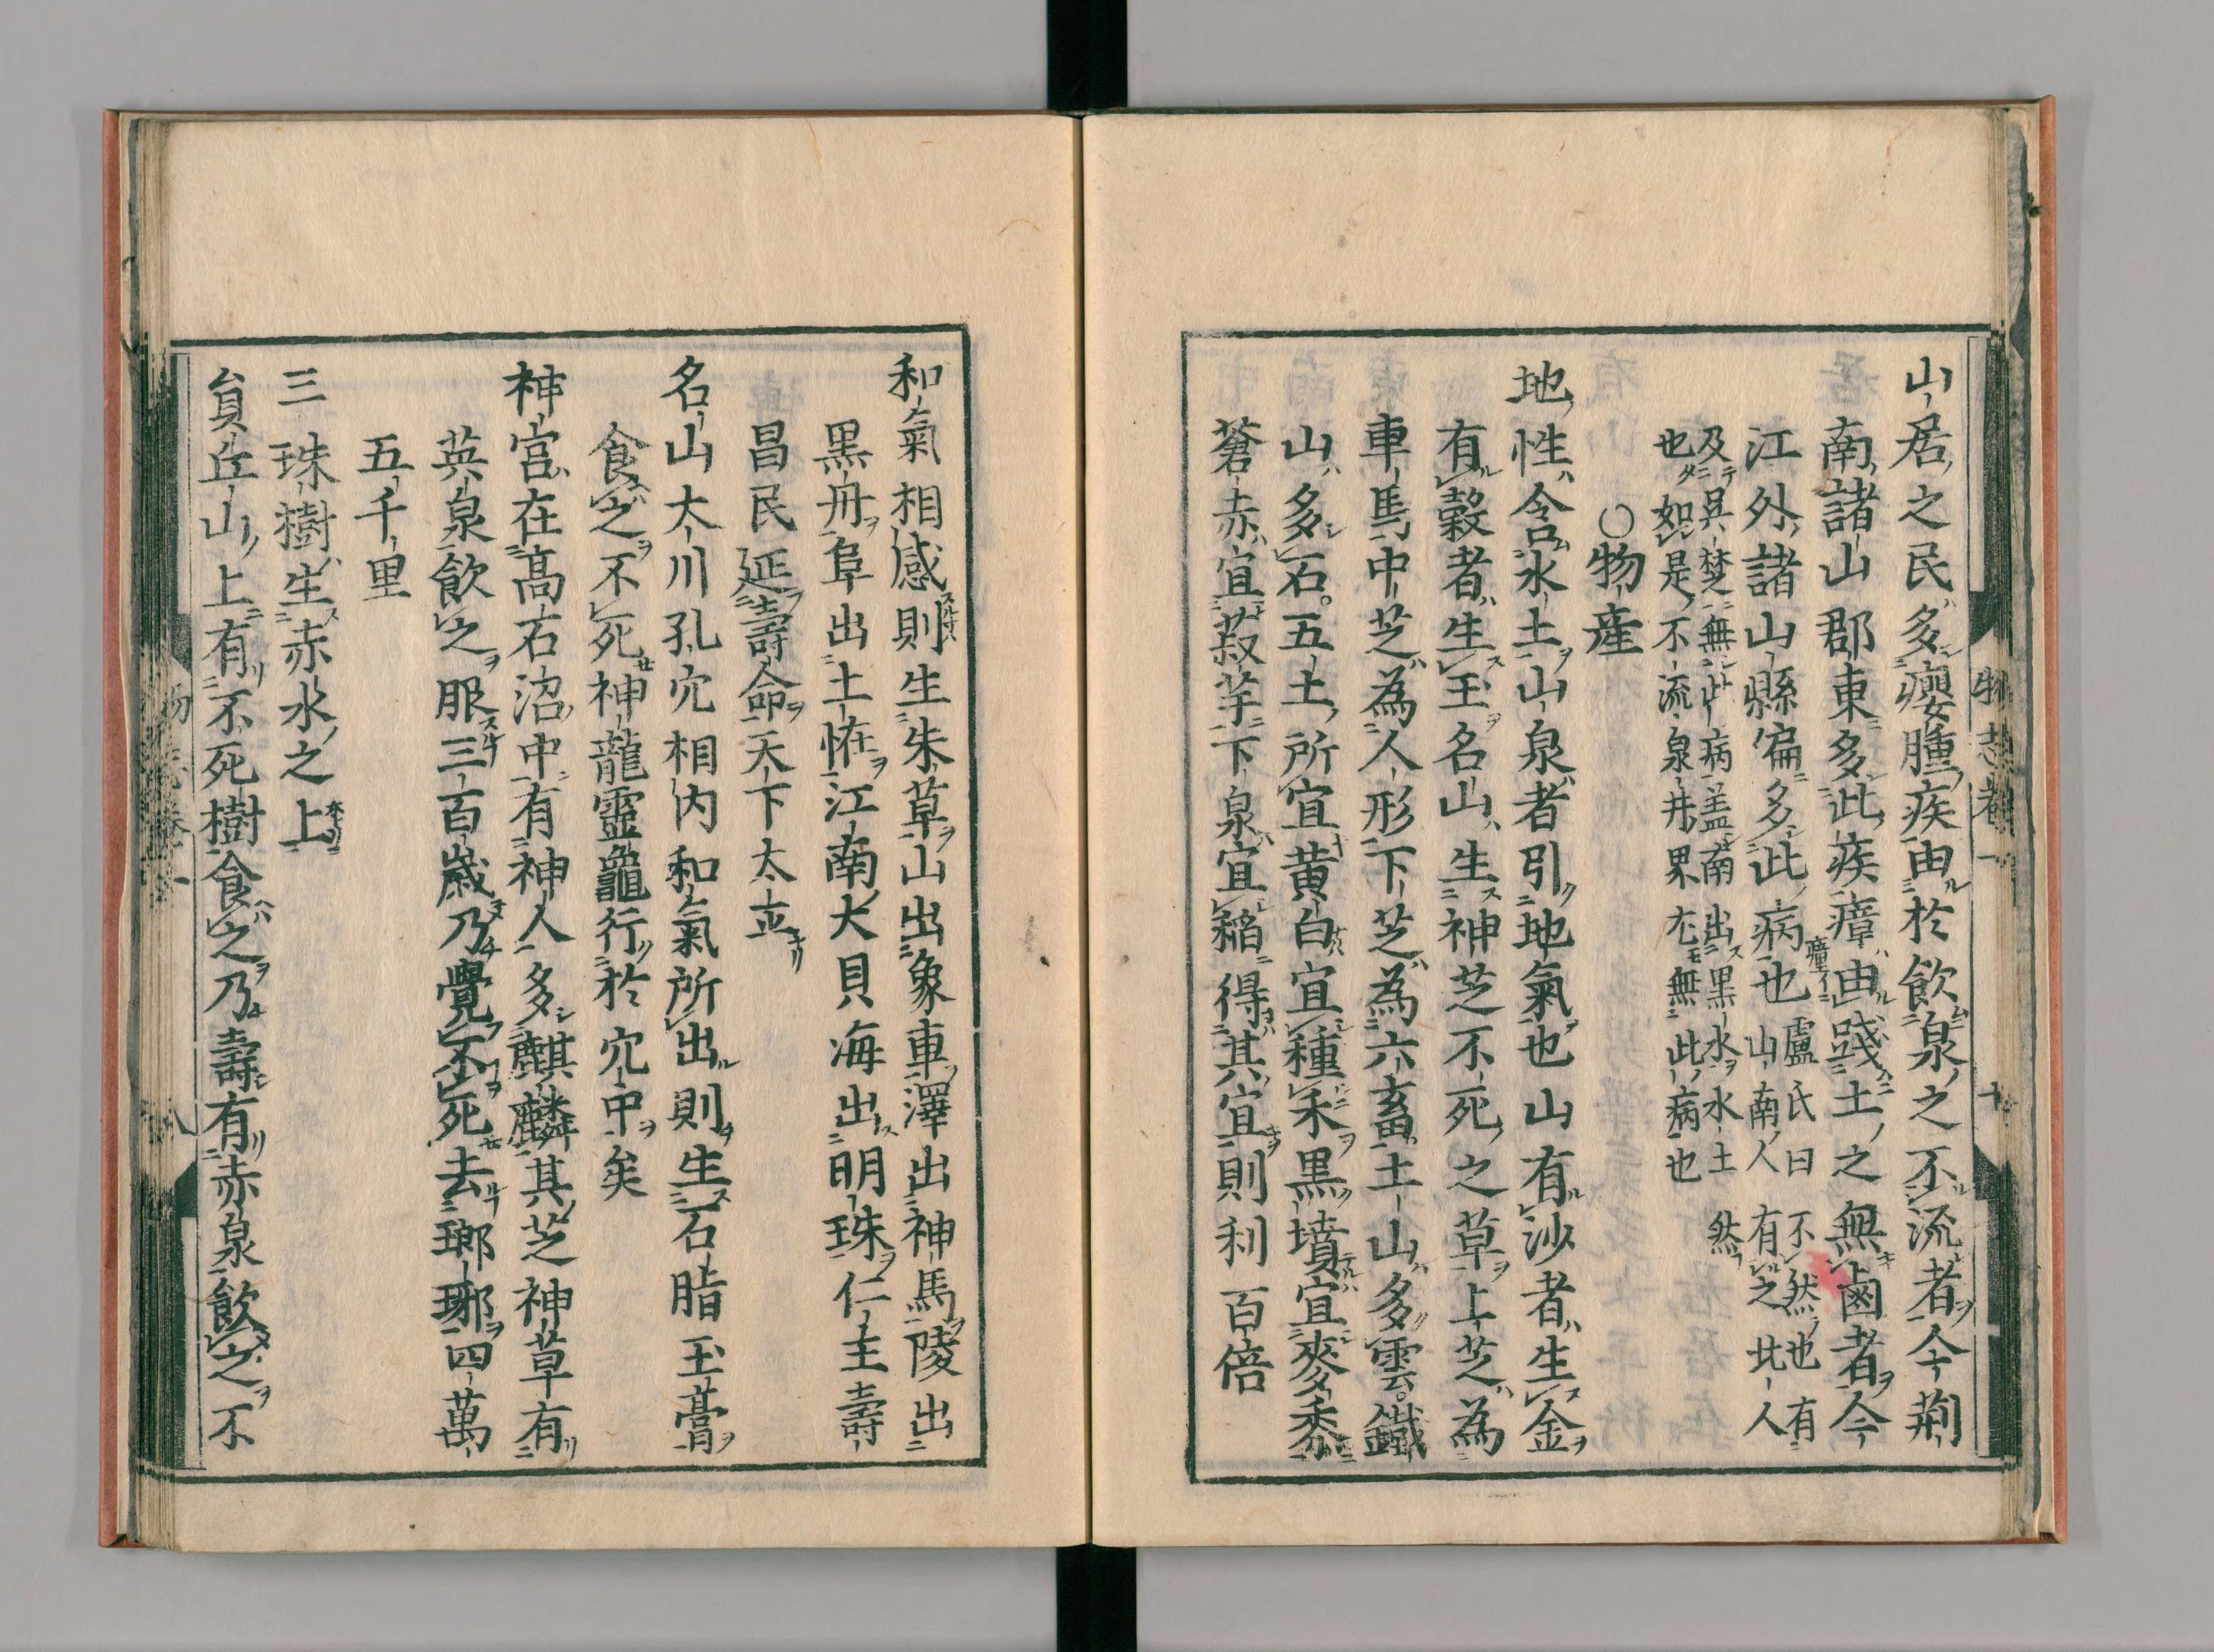 山居之民多癭腫疾由於飲泉之不流者今荆
南諸山郡東多此疾瘴由踐土之無鹵者今
江外諸山縣偏多此病也盧氏曰不然也有
山南人有之北人
及吳楚無此病蓋南出黒水水土然
也如是不流泉井界尤無此病也
○物産
地性含水土山泉者引地氣也山有沙者生金
有穀者生玉名山生神芝不死之草上芝為
車馬中芝為人形下芝為六畜土山多雲鐵
山多石五土所宜黄白宜種禾黒墳宜麥黍
蒼赤宜菽芋下泉宜稲得其宜則利百倍
和氣相感則生朱草山出象車澤出神馬陵出
黒丹阜出土恠江南大貝海出明珠仁主壽
昌民延壽命天下太平
名山大川孔穴相内和氣所出則生石脂玉膏
食之不死神龍靈龜行於穴中矣
神宫在髙石沼中有神人多麒麟其芝神草有
英泉飲之服三百歳乃覺不死去瑯琊四萬
五千里
三珠樹生赤水之上
貟丘山上有不死樹食之乃壽有赤泉飲之不